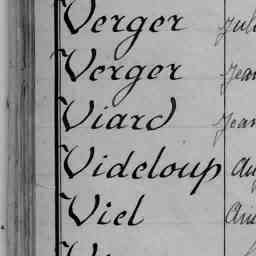 Verger
Verger Jean
Viard Jean
Videloup
Viel